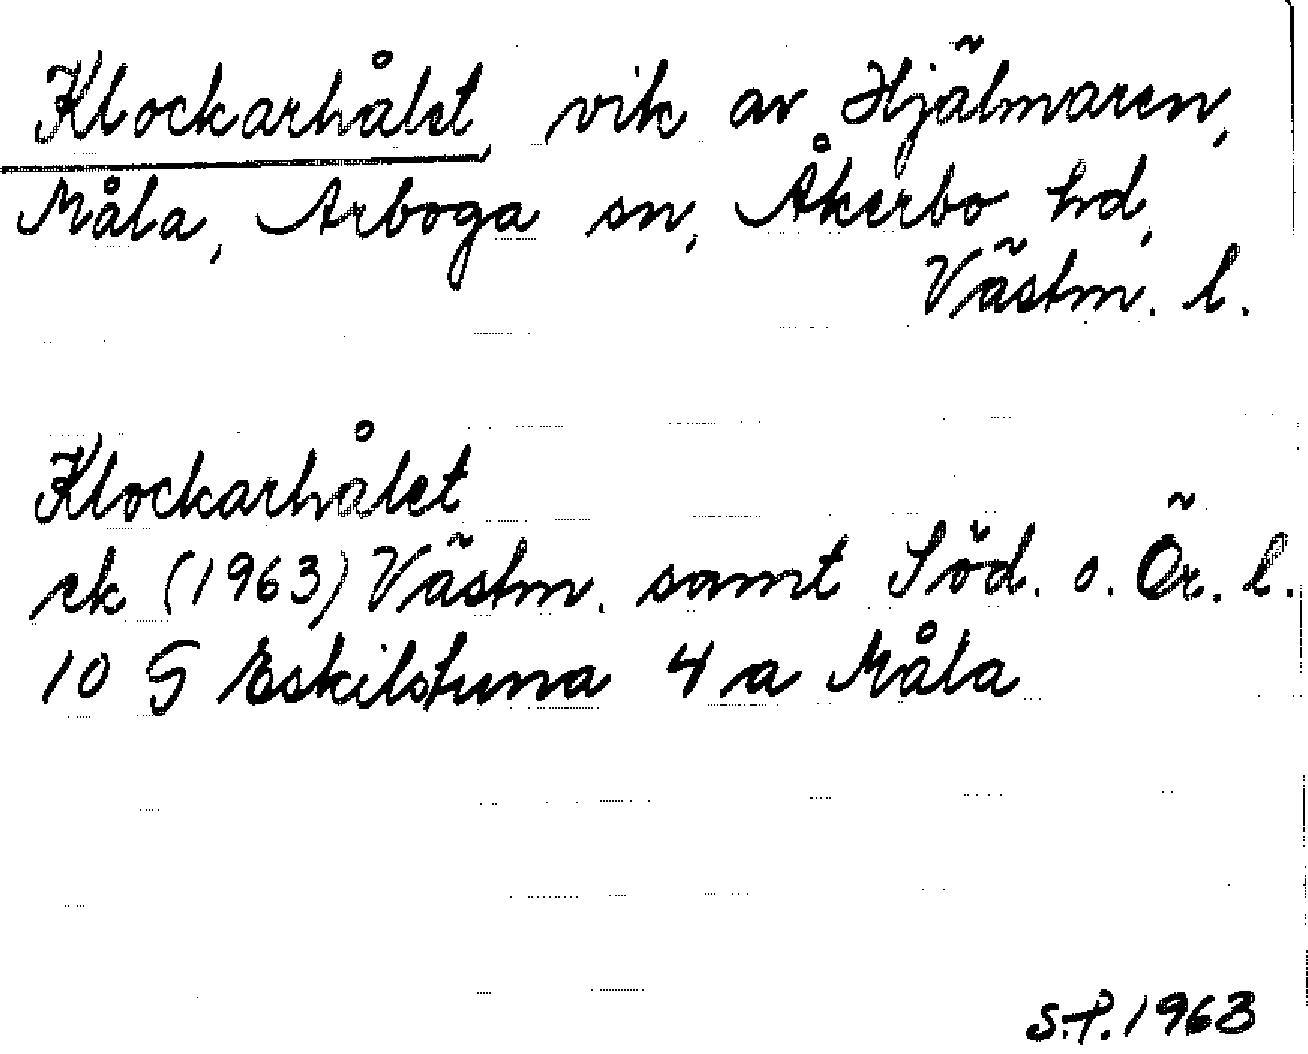 Klockarhålet, vik av Hjälmaren,
Måla, Arboga sn, Åkerbo hd,
Västm. l.
Klockarhålet
ek (1963) Västm. samt Söd. o. Ör. l.
10 G Eskilstuna 4 a Måla
S.P. 1963